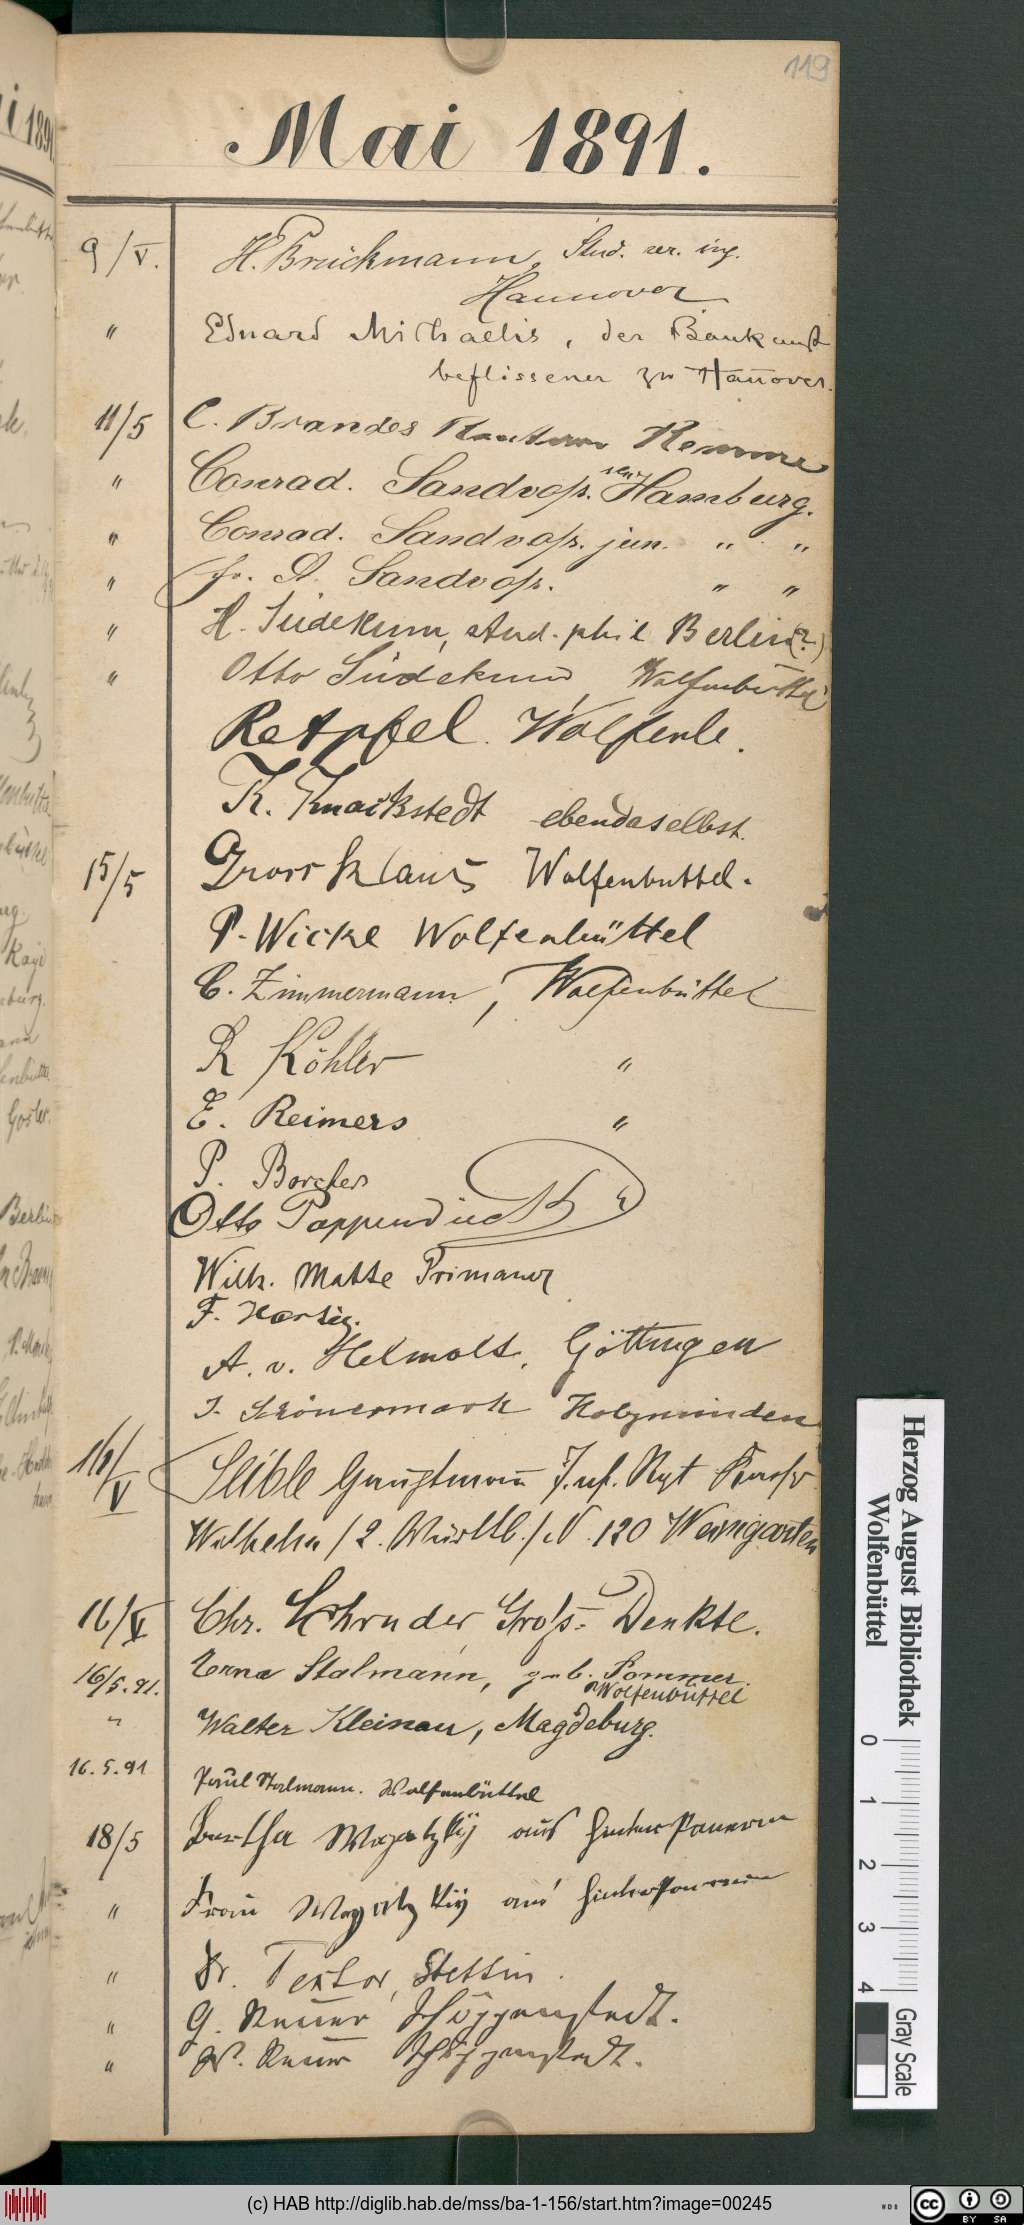 119
Mai 1891.
9/V. H. Brückmann, Stud. rer. ing.
Hannover
" Eduard Michaelis, der Baukunst
beflissener zu Hanover.
11/5 C. Brandes
" Conrad. Sandvoß. sen. Hamburg.
" Conrad. Sandvoß. jun. " "
" Fr. A. Sandvoß. " "
" H. Südekum, stud. phil Berlin(?)
" Otto Südekum, Wolfenbüttel
Retpfel. Wolfenb.
K. Knackstedt ebendaselbst.
15/5 Grossklaus Wolfenbuttel.
P. Wicke Wolfenbüttel
C. Zimmermann, Wolfenbüttel
R Köhler "
E. Reimers "
P. Borchers
Otto Pappendieck
Wilh. Matte Primaner
F. Hartig.
A. v. Helmolt, Göttingen
J. Schönermark Holzminden
16/V Hauptmann Inf. Rgt Kaiser
Wilhelm (2. Württb.) N. 120 Weingarten
16/V Chr. Schruder, Groß-Denkte.
16/5.91. Erna Stalmann, geb. Sommer.
Wolfenbüttel
" Walter Kleinau, Magdeburg.
16.5.91 Paul Stalmann. Wolfenbüttel
18/5 Bertha aus Hinterpommern
" Frau aus Hinterpommern
" Dr. Textor, Stettin.
" G. Schöppenstedt.
" W. Schöppenstedt.
Herzog August Bibliothek
Wolfenbüttel
0 1 2 3 4
Gray Scale
(c) HAB http://diglib.hab.de/mss/ba-1-156/start.htm?image=00245
WDB
CC BY SA